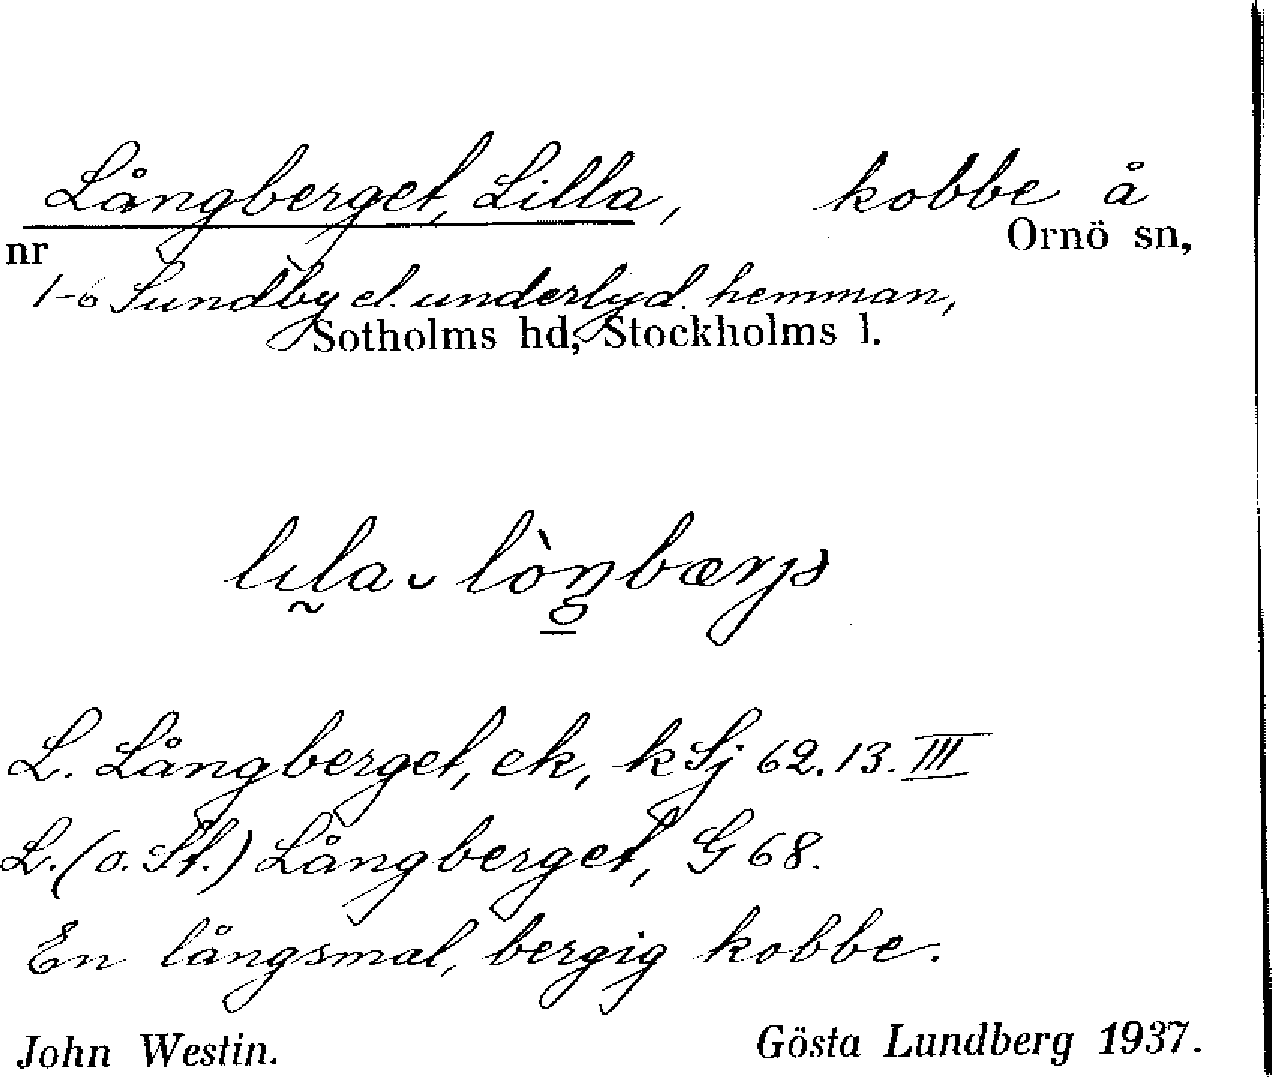 Långberget, Lilla, kobbe å
Ornö sn,
nr
1-6 Sundby el. underlyd. hemman,
Sotholms hd, Stockholms l.
L. Långberget, ek, kSj 62.13.III
L. (o. St.) Långberget, G 68.
En långsmal, bergig kobbe.
John Westin. Gösta Lundberg 1937.